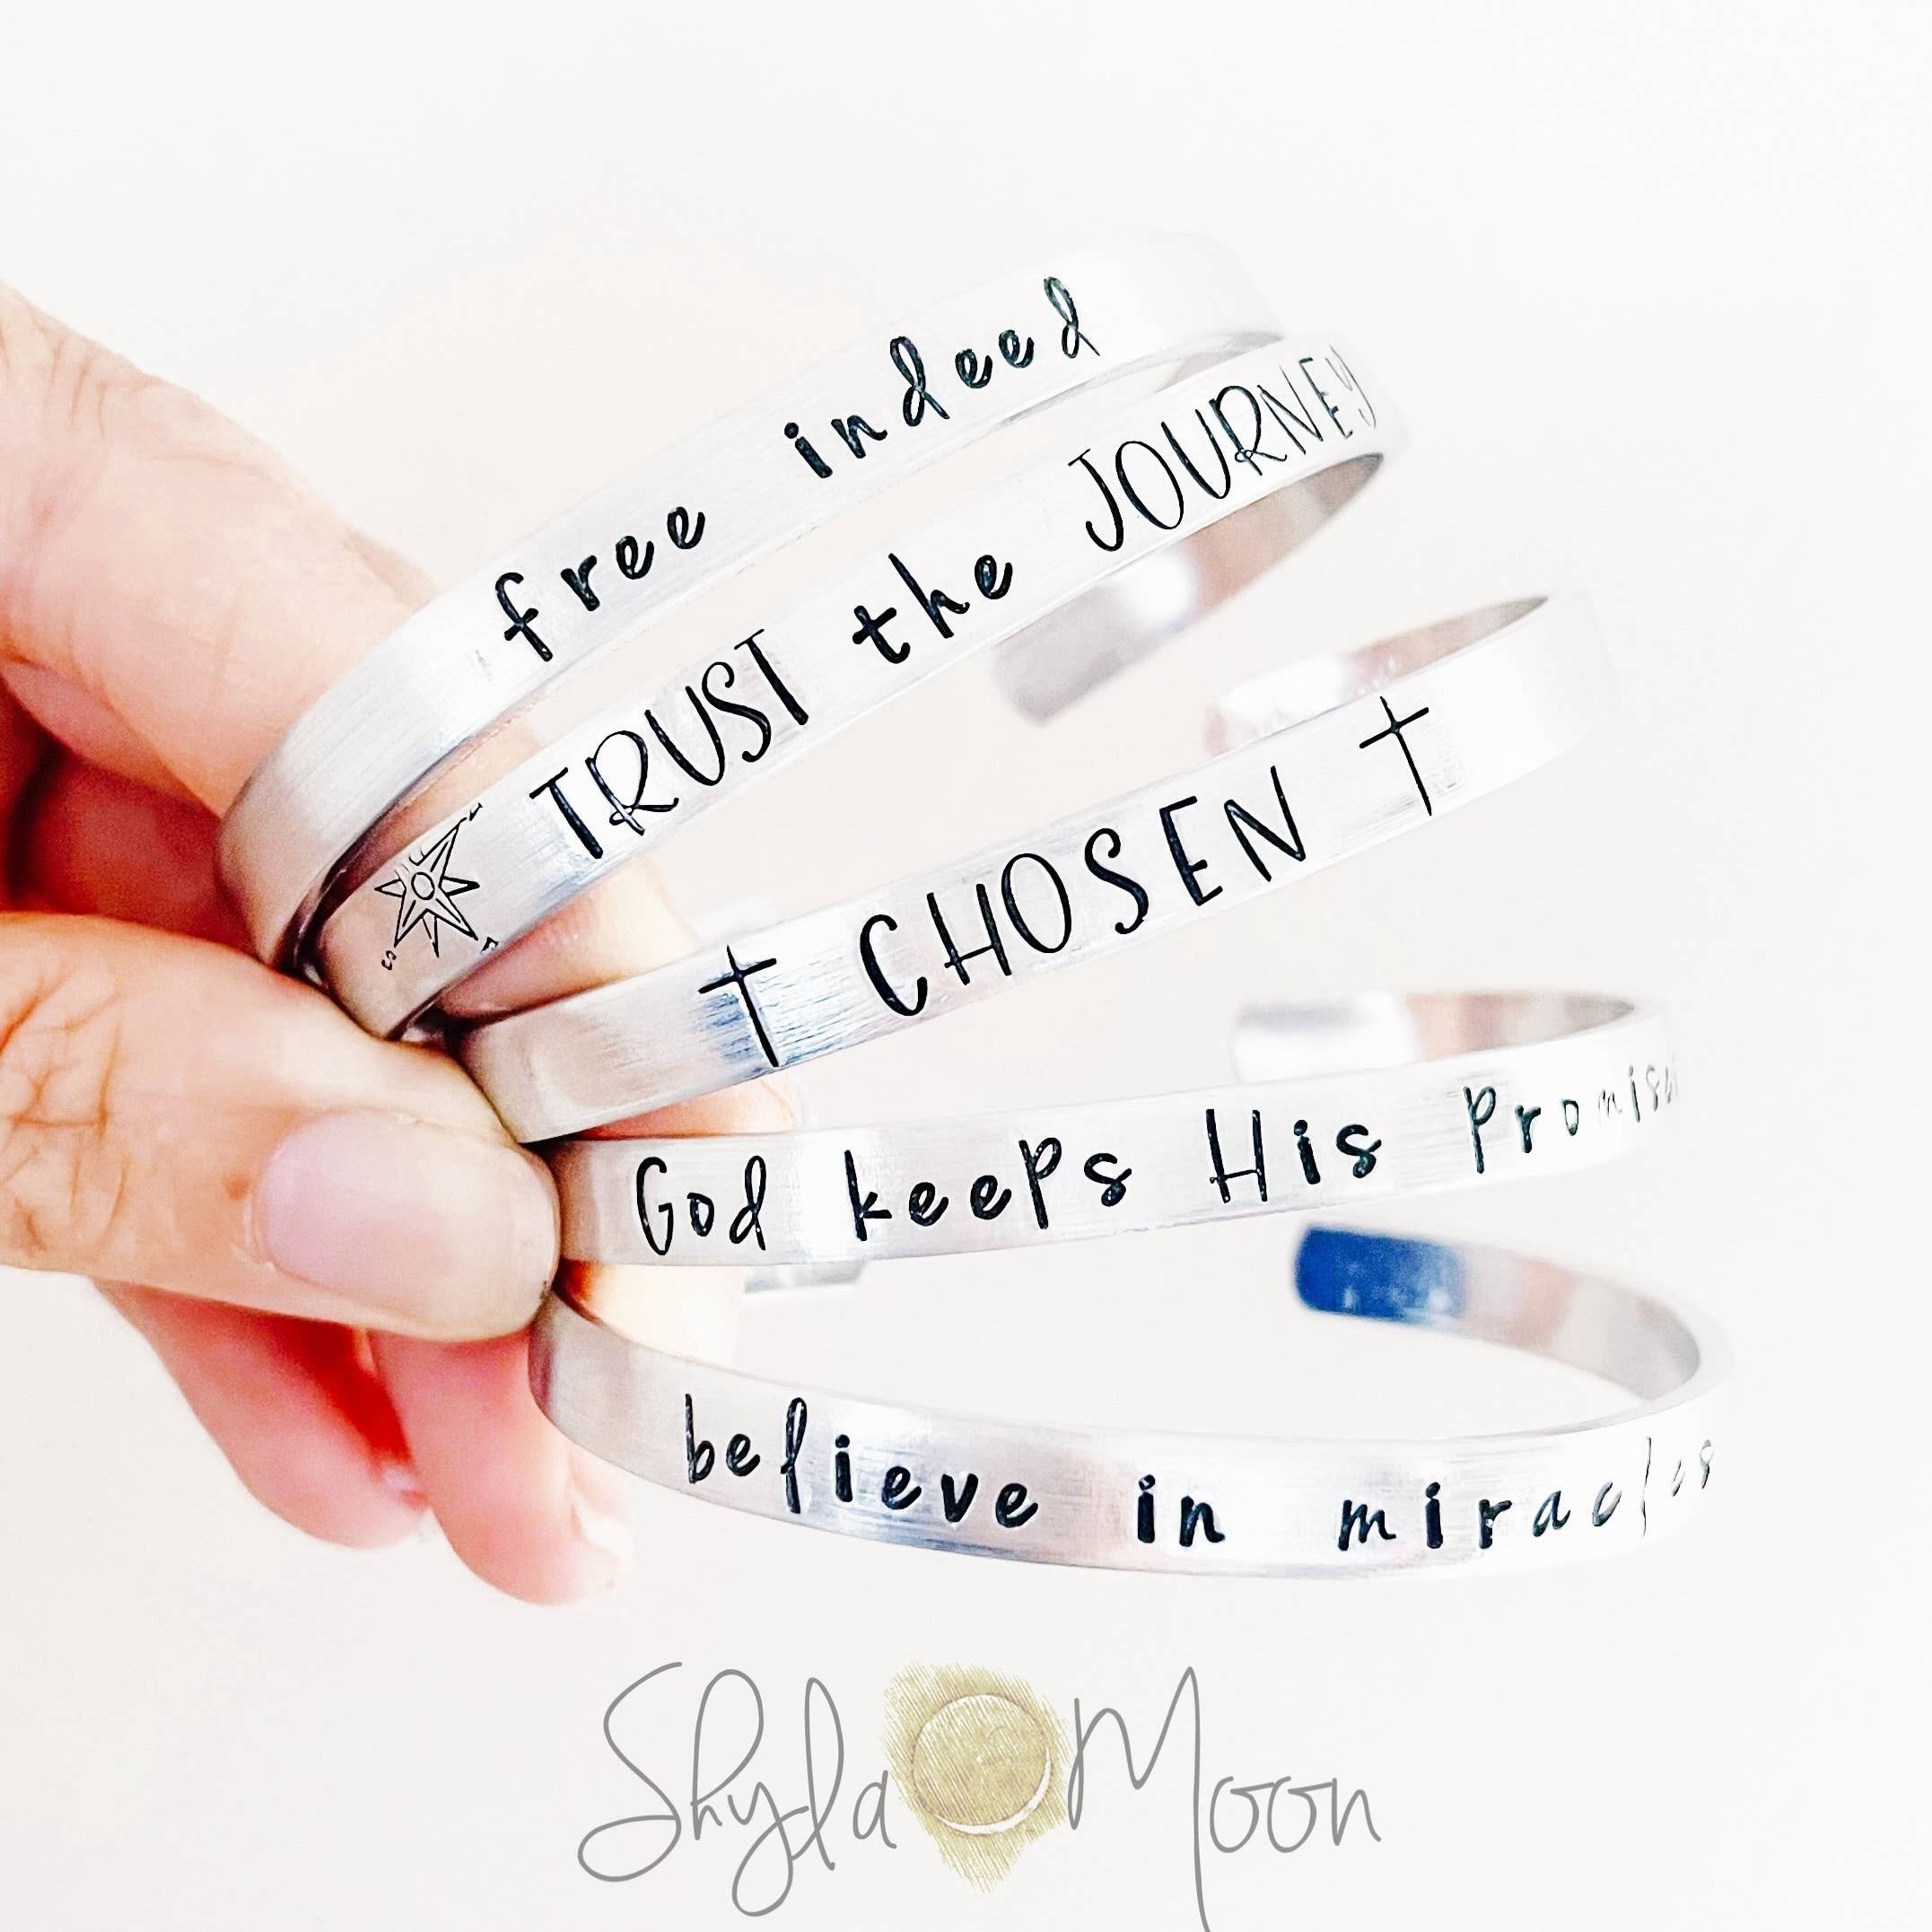 free indeed
TRUST the JOURNEY
S E
CHOSEN
God keeps His Promises
believe in miracles
Shyla Moon